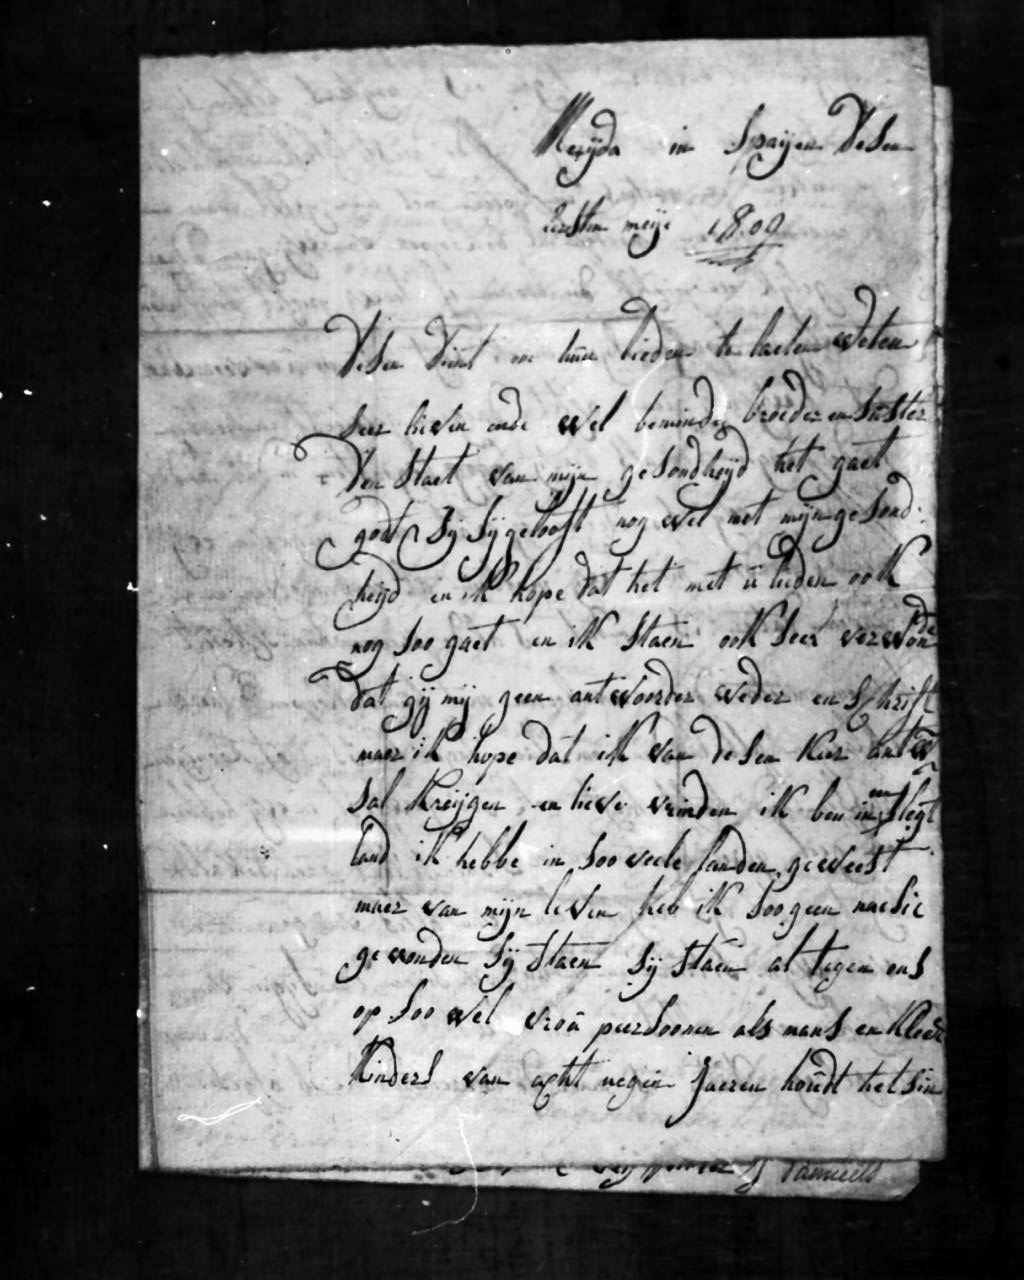 Merijda in Spaijen desen
eersten meije 1809
desen dient om uwe lieden te laeten weten
seer lieven ende wel beminden broeder en suster
den staet van mijn gesondheijd het gaet
godt zij sijgelooft nog wel met mijn gesond
heijd en ik hope dat het met u lieden ook
nog soo gaet en ik staen ook seer verwon de
dat gij mij geen antwoorder weder en schrift
maer ik hope dat ik van desen keer antw
sal kreijgen en lieve vrinden ik ben in en slegt
land ik hebbe in soo veele landen geweest
maer van mijn leven heb ik soo geen naesie
gevonden sij staen sij staen al tegen ons
op soo wel vrou persoonen als mans en kleen
kinders van acht negen Jaeren houdt het sin